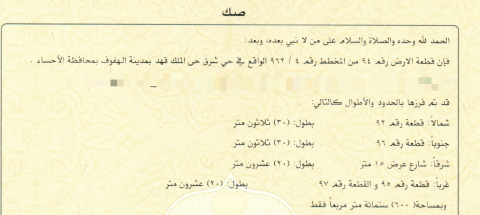 صك
الحمد لله وحده والصلاة والسلام على من لا نبي بعده، وبعد:
فإن قطعة الارض رقم ٩٤ من المخطط رقم ٤ / ٩٦٢ الواقع في حي شرق حى الملك فهد بمدينة الهفوف بمحافظة الأحساء .
قد تم فرزها بالحدود والأطوال كالتالي:
شمالاً: قطعة رقم ٩٢ بطول: (٣٠) ثلاثون متر
جنوباً: قطعة رقم ٩٦ بطول: (٣٠) ثلاثون متر
شرقاً: شارع عرض ١٥ متر بطول: (٢٠) عشرون متر
غرباً: قطعة رقم ٩٥ و القطعة رقم ٩٧ بطول: (٢٠) عشرون متر
وبمساحة (٦٠٠) ستمائة متر مربعاً فقط